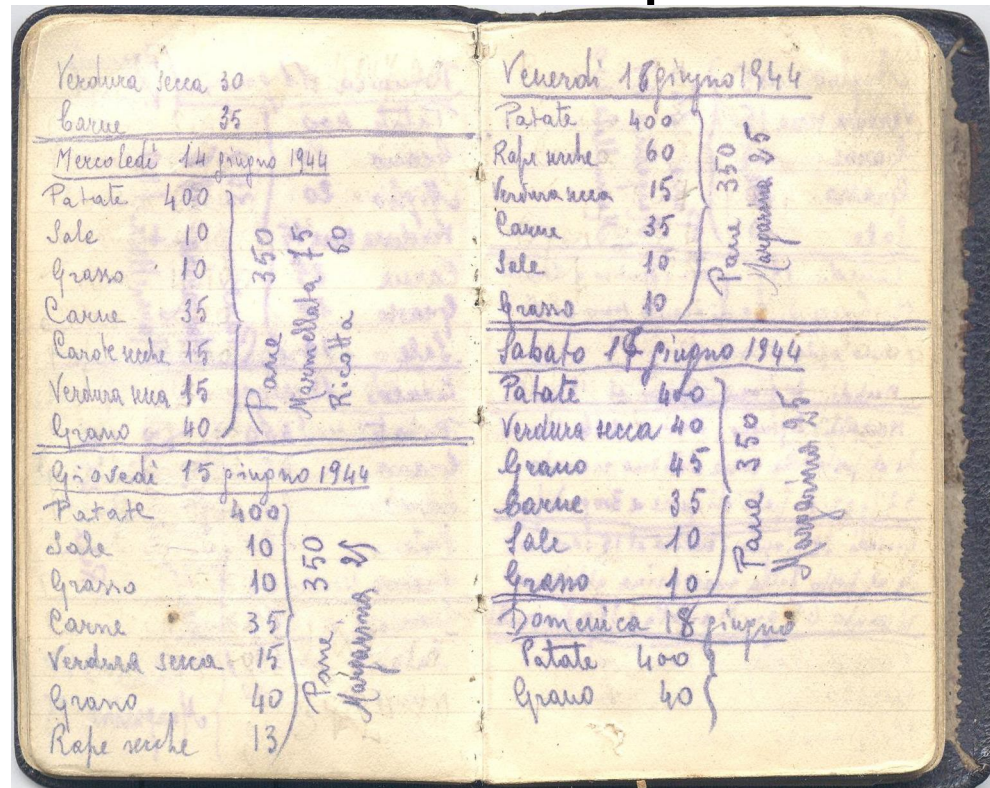 Verdura secca 30
Carne 35
Mercoledì 14 giugno 1944
Patate 400
Sale 10
Grasso 10
Carne 35
Carote secche 15
Verdura secca 15
Grano 40
Pane 350
Marmellata 75
Ricotta 60
Giovedì 15 giugno 1944
Patate 400
Sale 10
Grasso 10
Carne 35
Verdura secca 15
Grano 40
Rape secche 13
Pane 350
Margarina 25
Venerdì 16 giugno 1944
Patate 400
Rape secche 60
Verdura secca 15
Carne 35
Sale 10
Grasso 10
Pane 350
Margarina 25
Sabato 17 giugno 1944
Patate 400
Verdura secca 40
Grano 45
Carne 35
Sale 10
Grasso 10
Pane 350
Margarina 25
Domenica 18 giugno
Patate 400
Grano 40